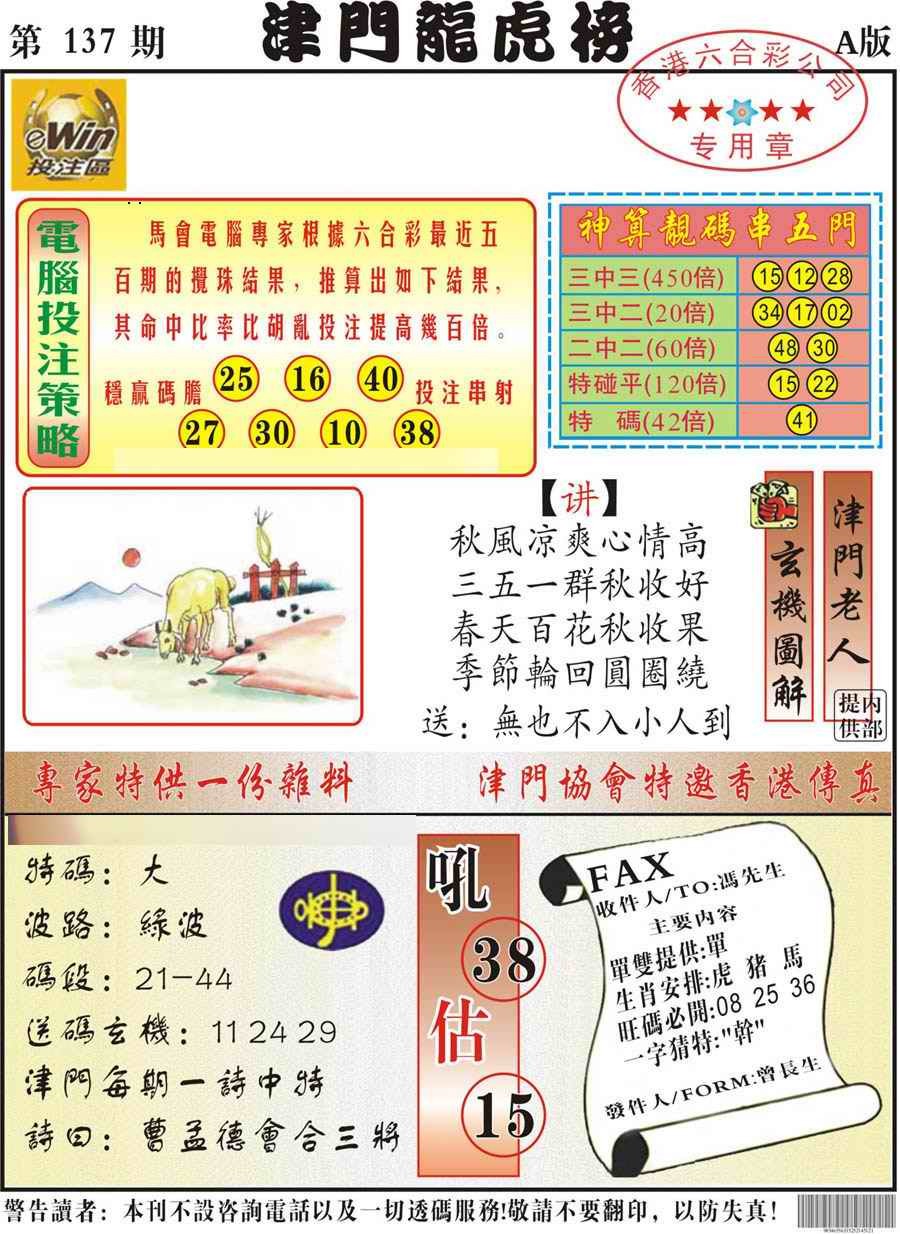 第 137 期
津門龍虎榜
A版
香港六合彩公司
专用章
eWin
投注區
電腦投注策略
馬會電腦專家根據六合彩最近五
百期的攪珠結果，推算出如下結果，
其命中比率比胡亂投注提高幾百倍。
穩贏碼膽 25 16 40 投注串射
27 30 10 38
神算靚碼串五門
三中三(450倍) 15 12 28
三中二(20倍) 34 17 02
二中二(60倍) 48 30
特碰平(120倍) 15 22
特 碼(42倍) 41
【讲】
秋風凉爽心情高
三五一群秋收好
春天百花秋收果
季節輪回圓圈繞
送：無也不入小人到
玄機圖解
津門老人
内部提供
專家特供一份雜料
津門協會特邀香港傳真
特碼：大
波路：綠波
碼段：21-44
送碼玄機：11 24 29
津門每期一詩中特
詩曰：曹孟德會合三將
吼
38
估
15
FAX
收件人/TO:馮先生
主要内容
單雙提供:單
生肖安排:虎 豬 馬
旺碼必開:08 25 36
一字猜特:"幹"
發件人/FORM:曾長生
警告讀者：本刊不設咨詢電話以及一切透碼服務!敬請不要翻印，以防失真!